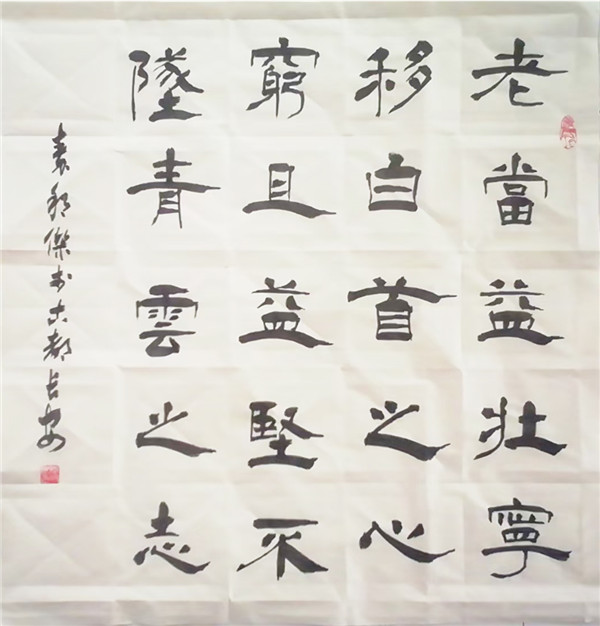 老當益壯寧
移白首之心
窮且益堅不
墜青雲之志
袁郅傑书古都长安